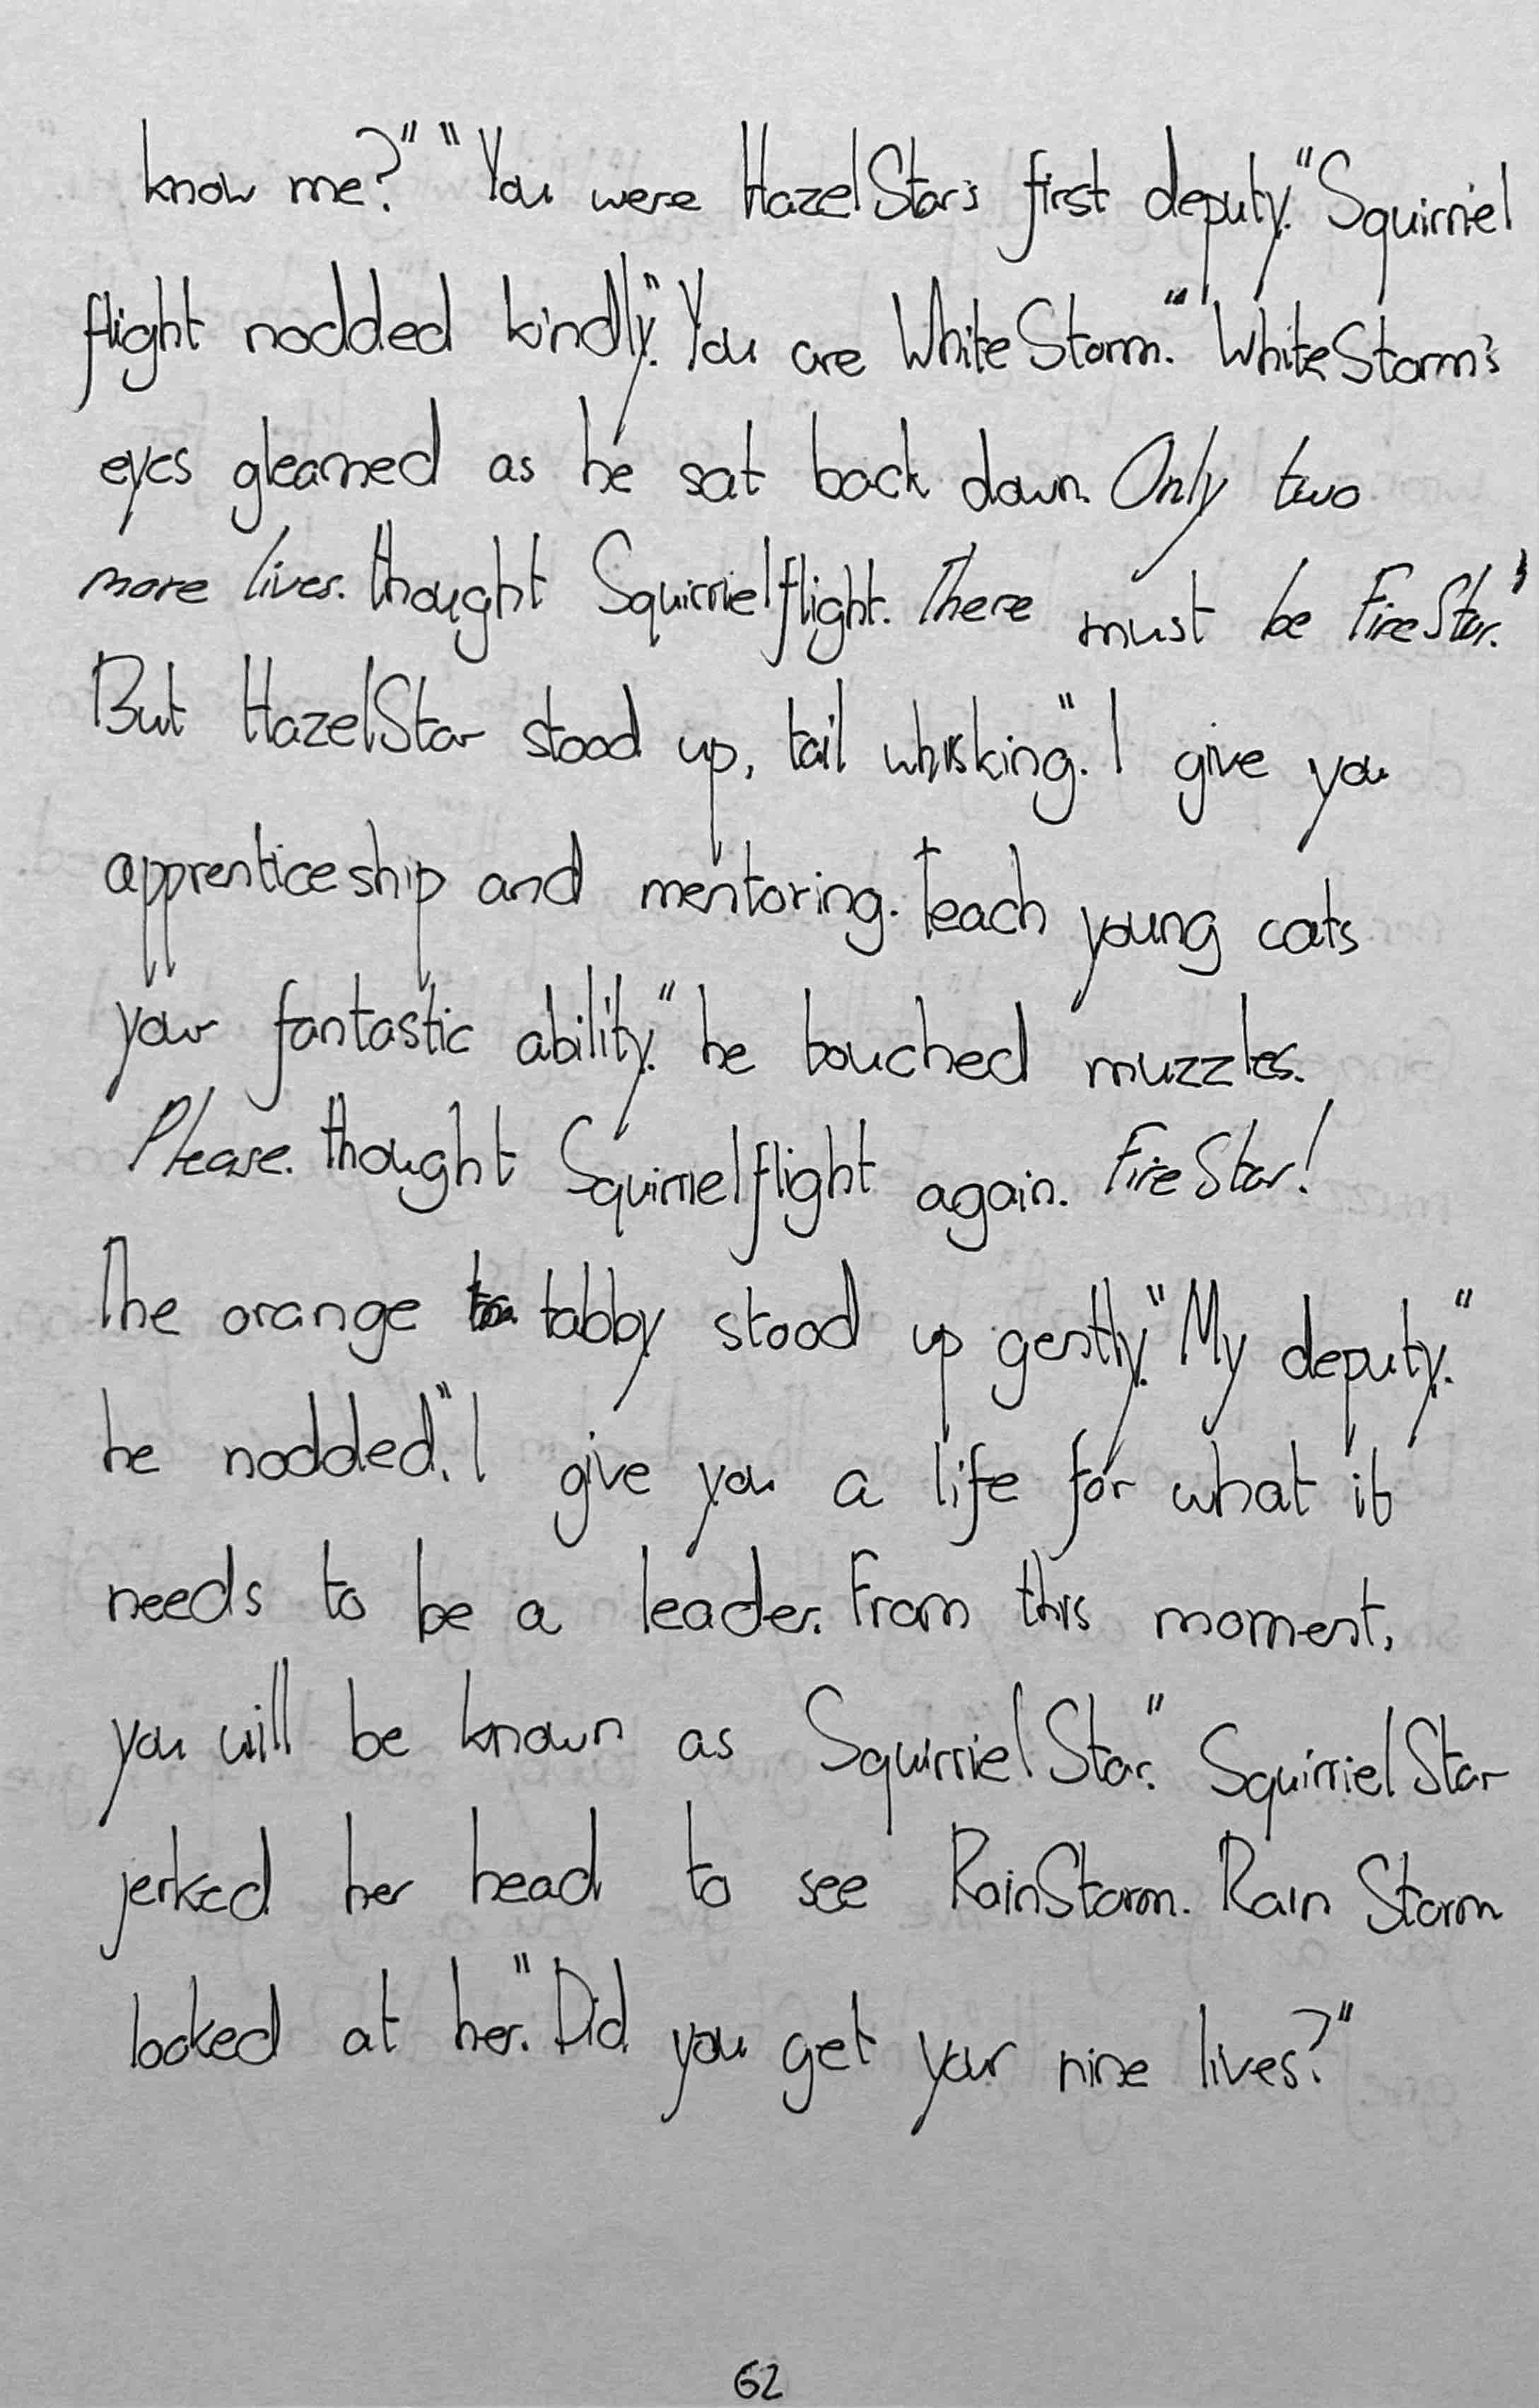 know me?" "You were HazelStar's first deputy." Squirriel
flight nodded kindly." You are WhiteStorm." WhiteStorm's
eyes gleamed as he sat back down. Only two
more lives. thought Squirrielflight. There must be FireStar.'
But HazelStar stood up, tail whisking." I give you
apprenticeship and mentoring. Teach young cats
your fantastic ability." he touched muzzles.
Please. thought Squirrielflight again. FireStar!
The orange tabby stood up gently." My deputy."
he nodded." I give you a life for what it
needs to be a leader. From this moment,
you will be known as SquirrielStar." SquirrielStar
jerked her head to see RainStorm. Rain Storm
looked at her." Did you get your nine lives?"
62